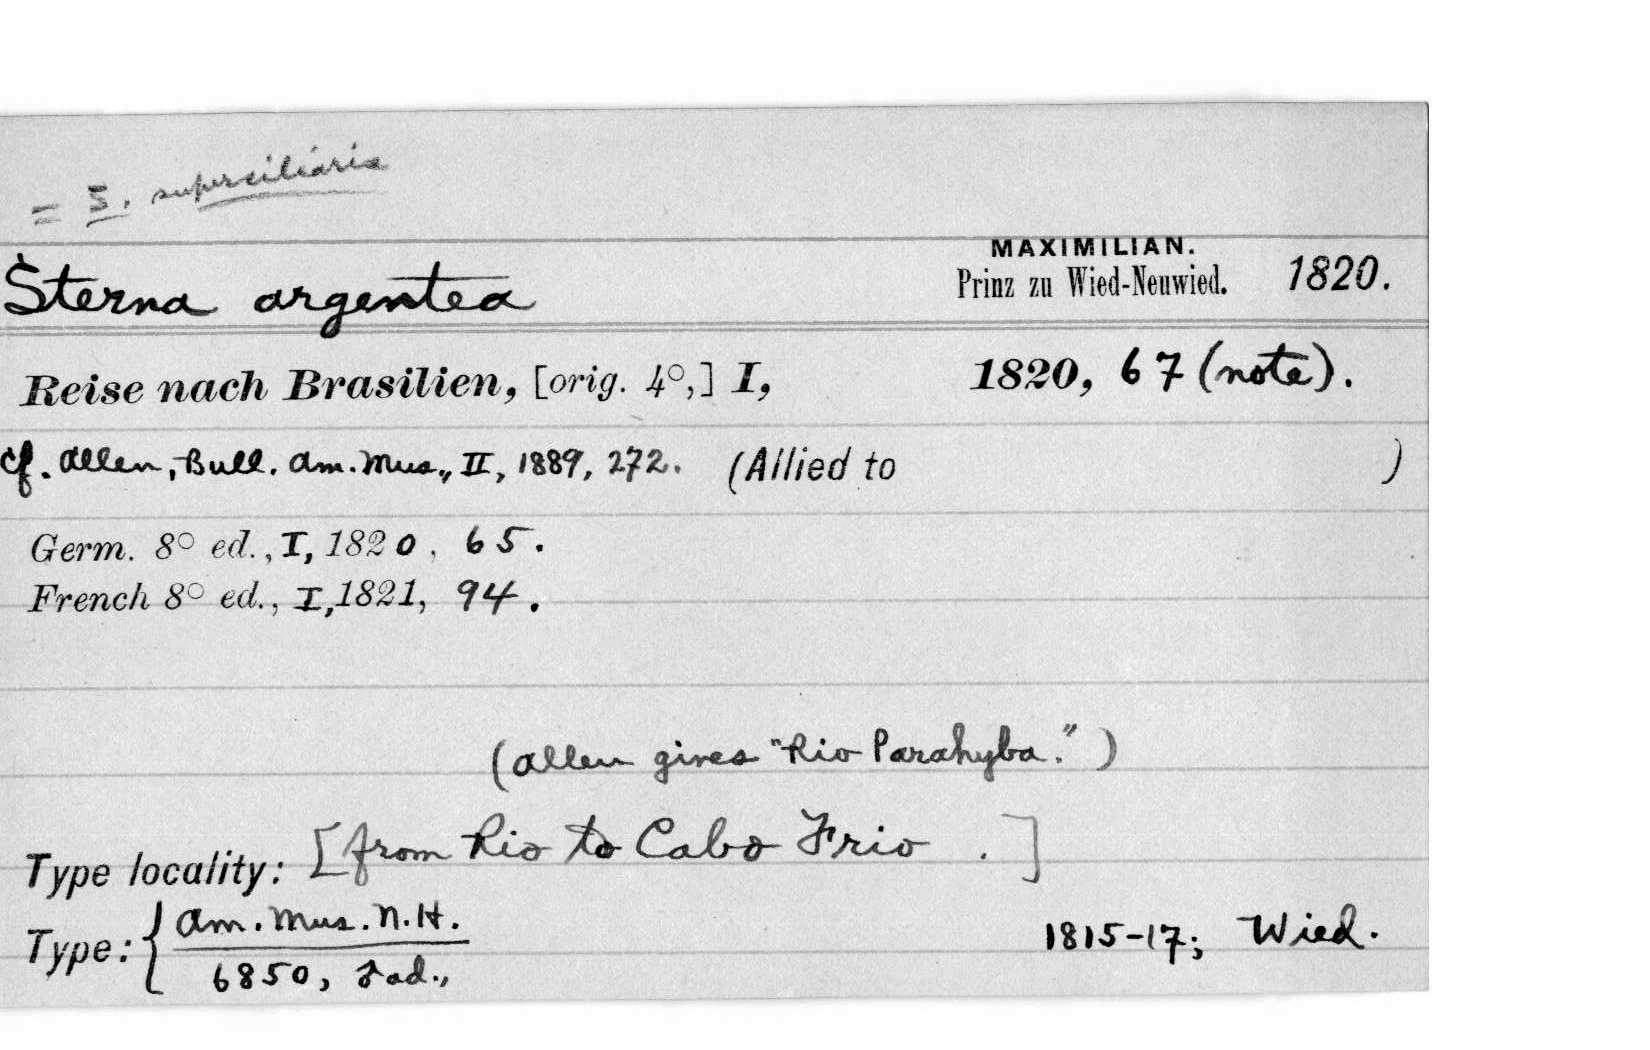 = S. superciliaris
Sterna argentea
MAXIMILIAN.
Prinz zu Wied-Neuwied. 1820.
Reise nach Brasilien, [orig. 4°,] I, 1820, 67 (note).
cf. Allen, Bull. Am. Mus., II, 1889, 272. (Allied to )
Germ. 8° ed., I, 1820, 65.
French 8° ed., I, 1821, 94.
(Allen gives "Rio Parahyba.")
Type locality: [from Rio to Cabo Frio .]
Type: { Am. Mus. N. H.
6850, ad., 1815-17; Wied.